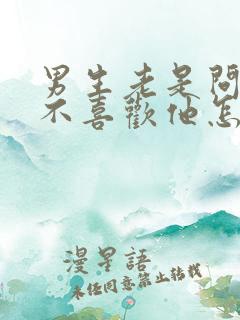 男生老是問
不喜歡他怎
漫星語
未经同意禁止转载